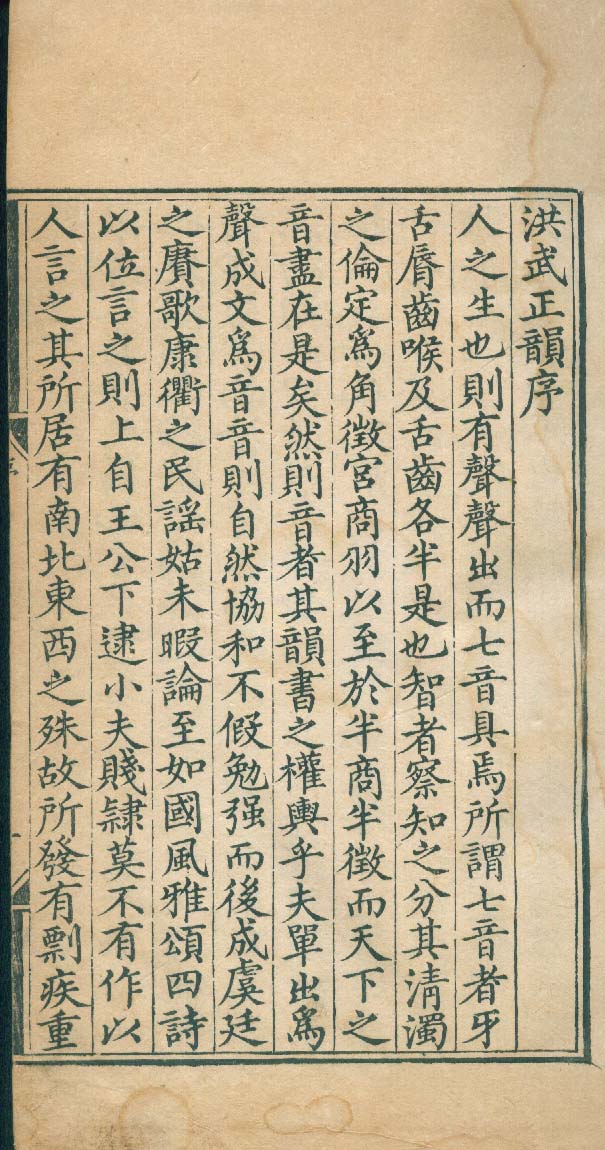 洪武正韻序
人之生也則有聲聲出而七音具焉所謂七音者牙
舌脣齒喉及舌齒各半是也智者察知之分其清濁
之倫定爲角徵宮商羽以至於半商半徵而天下之
音盡在是矣然則音者其韻書之權輿乎夫單出爲
聲成文爲音音則自然協和不假勉强而後成虞廷
之賡歌康衢之民謠姑未暇論至如國風雅頌四詩
以位言之則上自王公下逮小夫賤隷莫不有作以
人言之其所居有南北東西之殊故所發有剽疾重
序